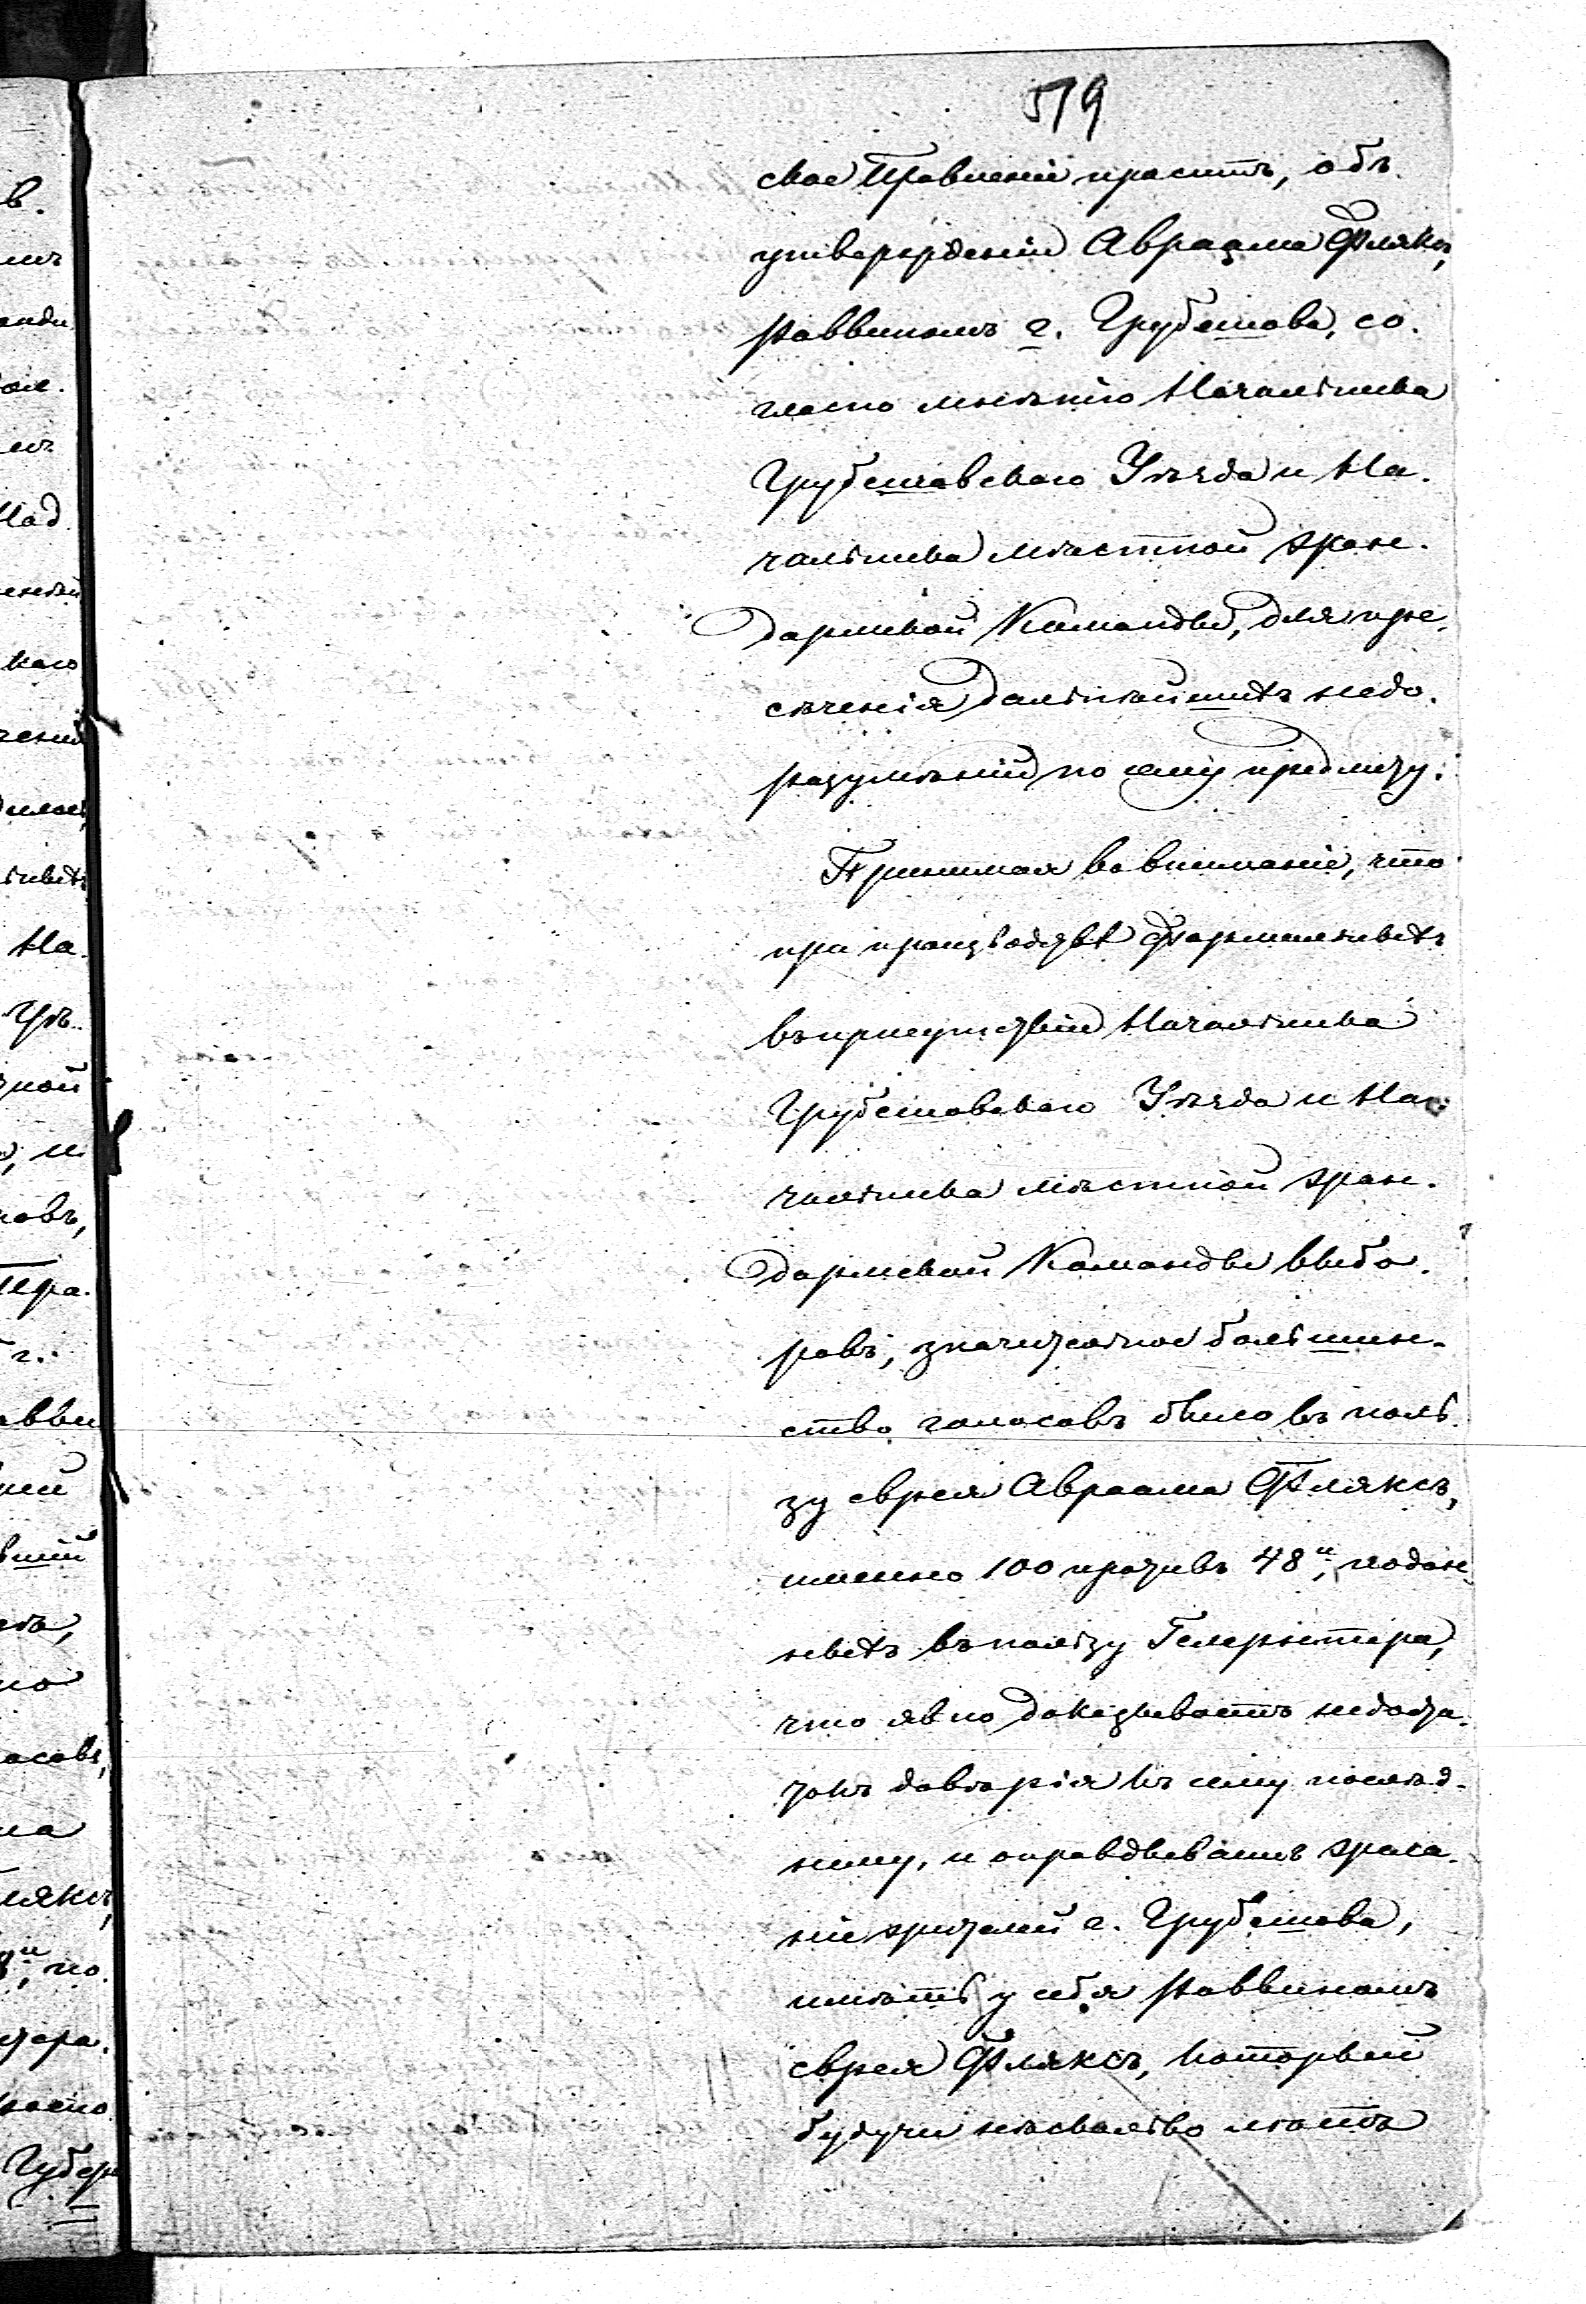 519
ское Правленіе проситъ, объ
утвержденіи Авраама Флякъ,
раввиномъ г. Грубешова, со-
гласно мнѣнію Начальника
Грубешовскаго Уѣзда и На-
чальника мѣстной жан-
дармской Команды, для пре-
сѣченія дальнѣйшихъ недо-
разумѣній по сему предмету.
Принимая во вниманіе, что
при производствѣ формальныхъ
въ присутствіи Начальника
Грубешовскаго Уѣзда и На-
чальника мѣстной жан-
дармской Команды выбо-
ровъ, значительное большин-
ство голосовъ было въ поль-
зу еврея Авраама Фляксъ,
именно 100 противъ 48и, подан-
ныхъ въ пользу Гелернтера,
что явно доказываетъ недоста-
токъ довѣрія къ сему послѣд-
нему, и оправдываетъ жела-
ніе жителей г. Грубешова,
имѣть у себя раввиномъ
еврея Фляксъ, который
будучи нѣсколько лѣтъ
в.
мъ
Над
каго
На
Уѣ
ной
, и
ковъ,
г.
шій
но
осовъ,
ма
ляксъ,
8и, по
тера.
Губер